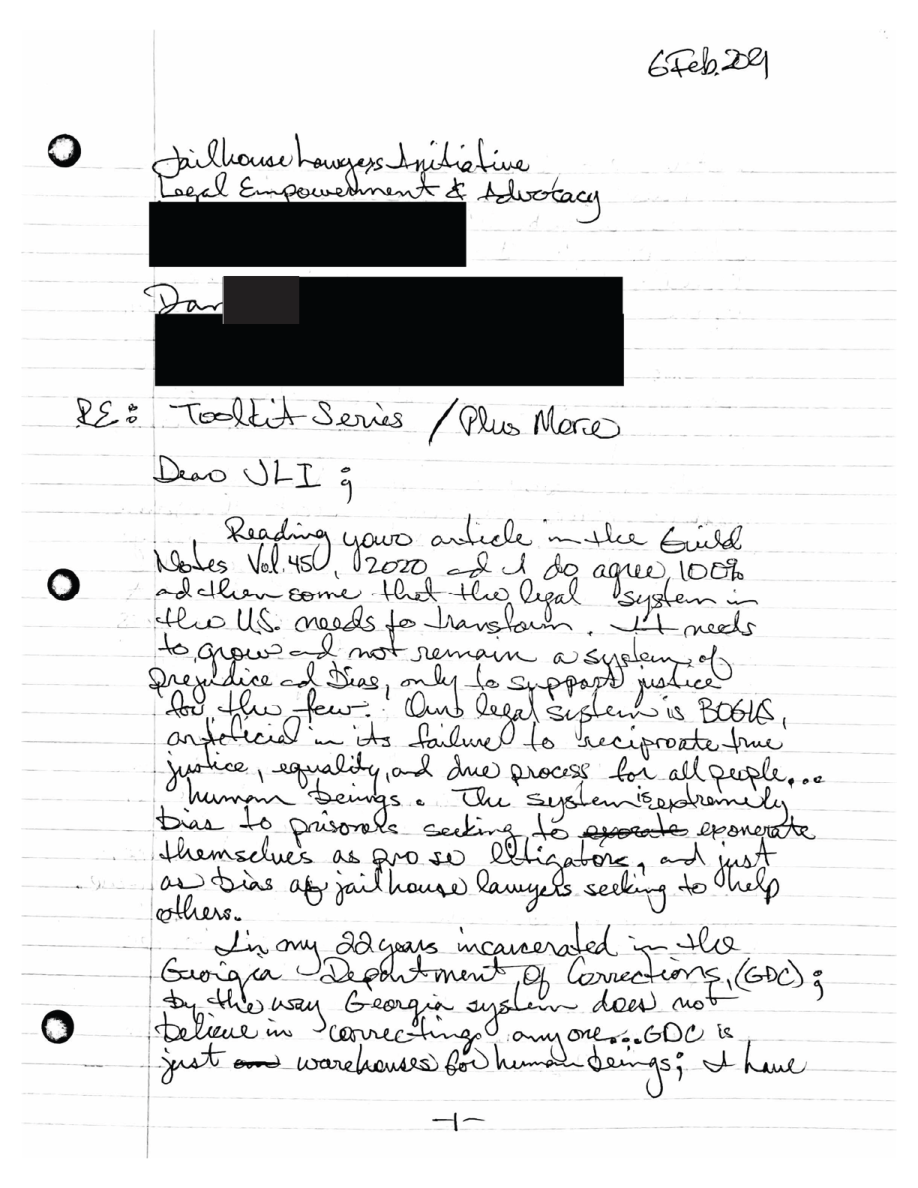 6 Feb. 2021
Jailhouse Lawyers Initiative
Legal Empowerment & Advocacy
Dar
RE: Toolkit Series / Plus More
Dear JLI ;
Reading your article in the Guild
Notes Vol. 45, 2020 and I do agree 100%
and then some that the legal system in
the U.S. needs to transform. It needs
to grow and not remain a system of
prejudice and bias, only to support justice
for the few. Our legal system is BOGUS,
arteficial in its failure to reciprocate true
justice, equality, and due process for all people...
human beings. The system is extremely
bias to prisoners seeking to exonerate
themselves as pro se litigators, and just
as bias as jailhouse lawyers seeking to help
others.
In my 22 years incarcerated in the
Georgia Department of Corrections, (GDC) ;
by the way Georgia system does not
believe in correcting anyone... GDC is
just warehouses for human beings; I have
-1-